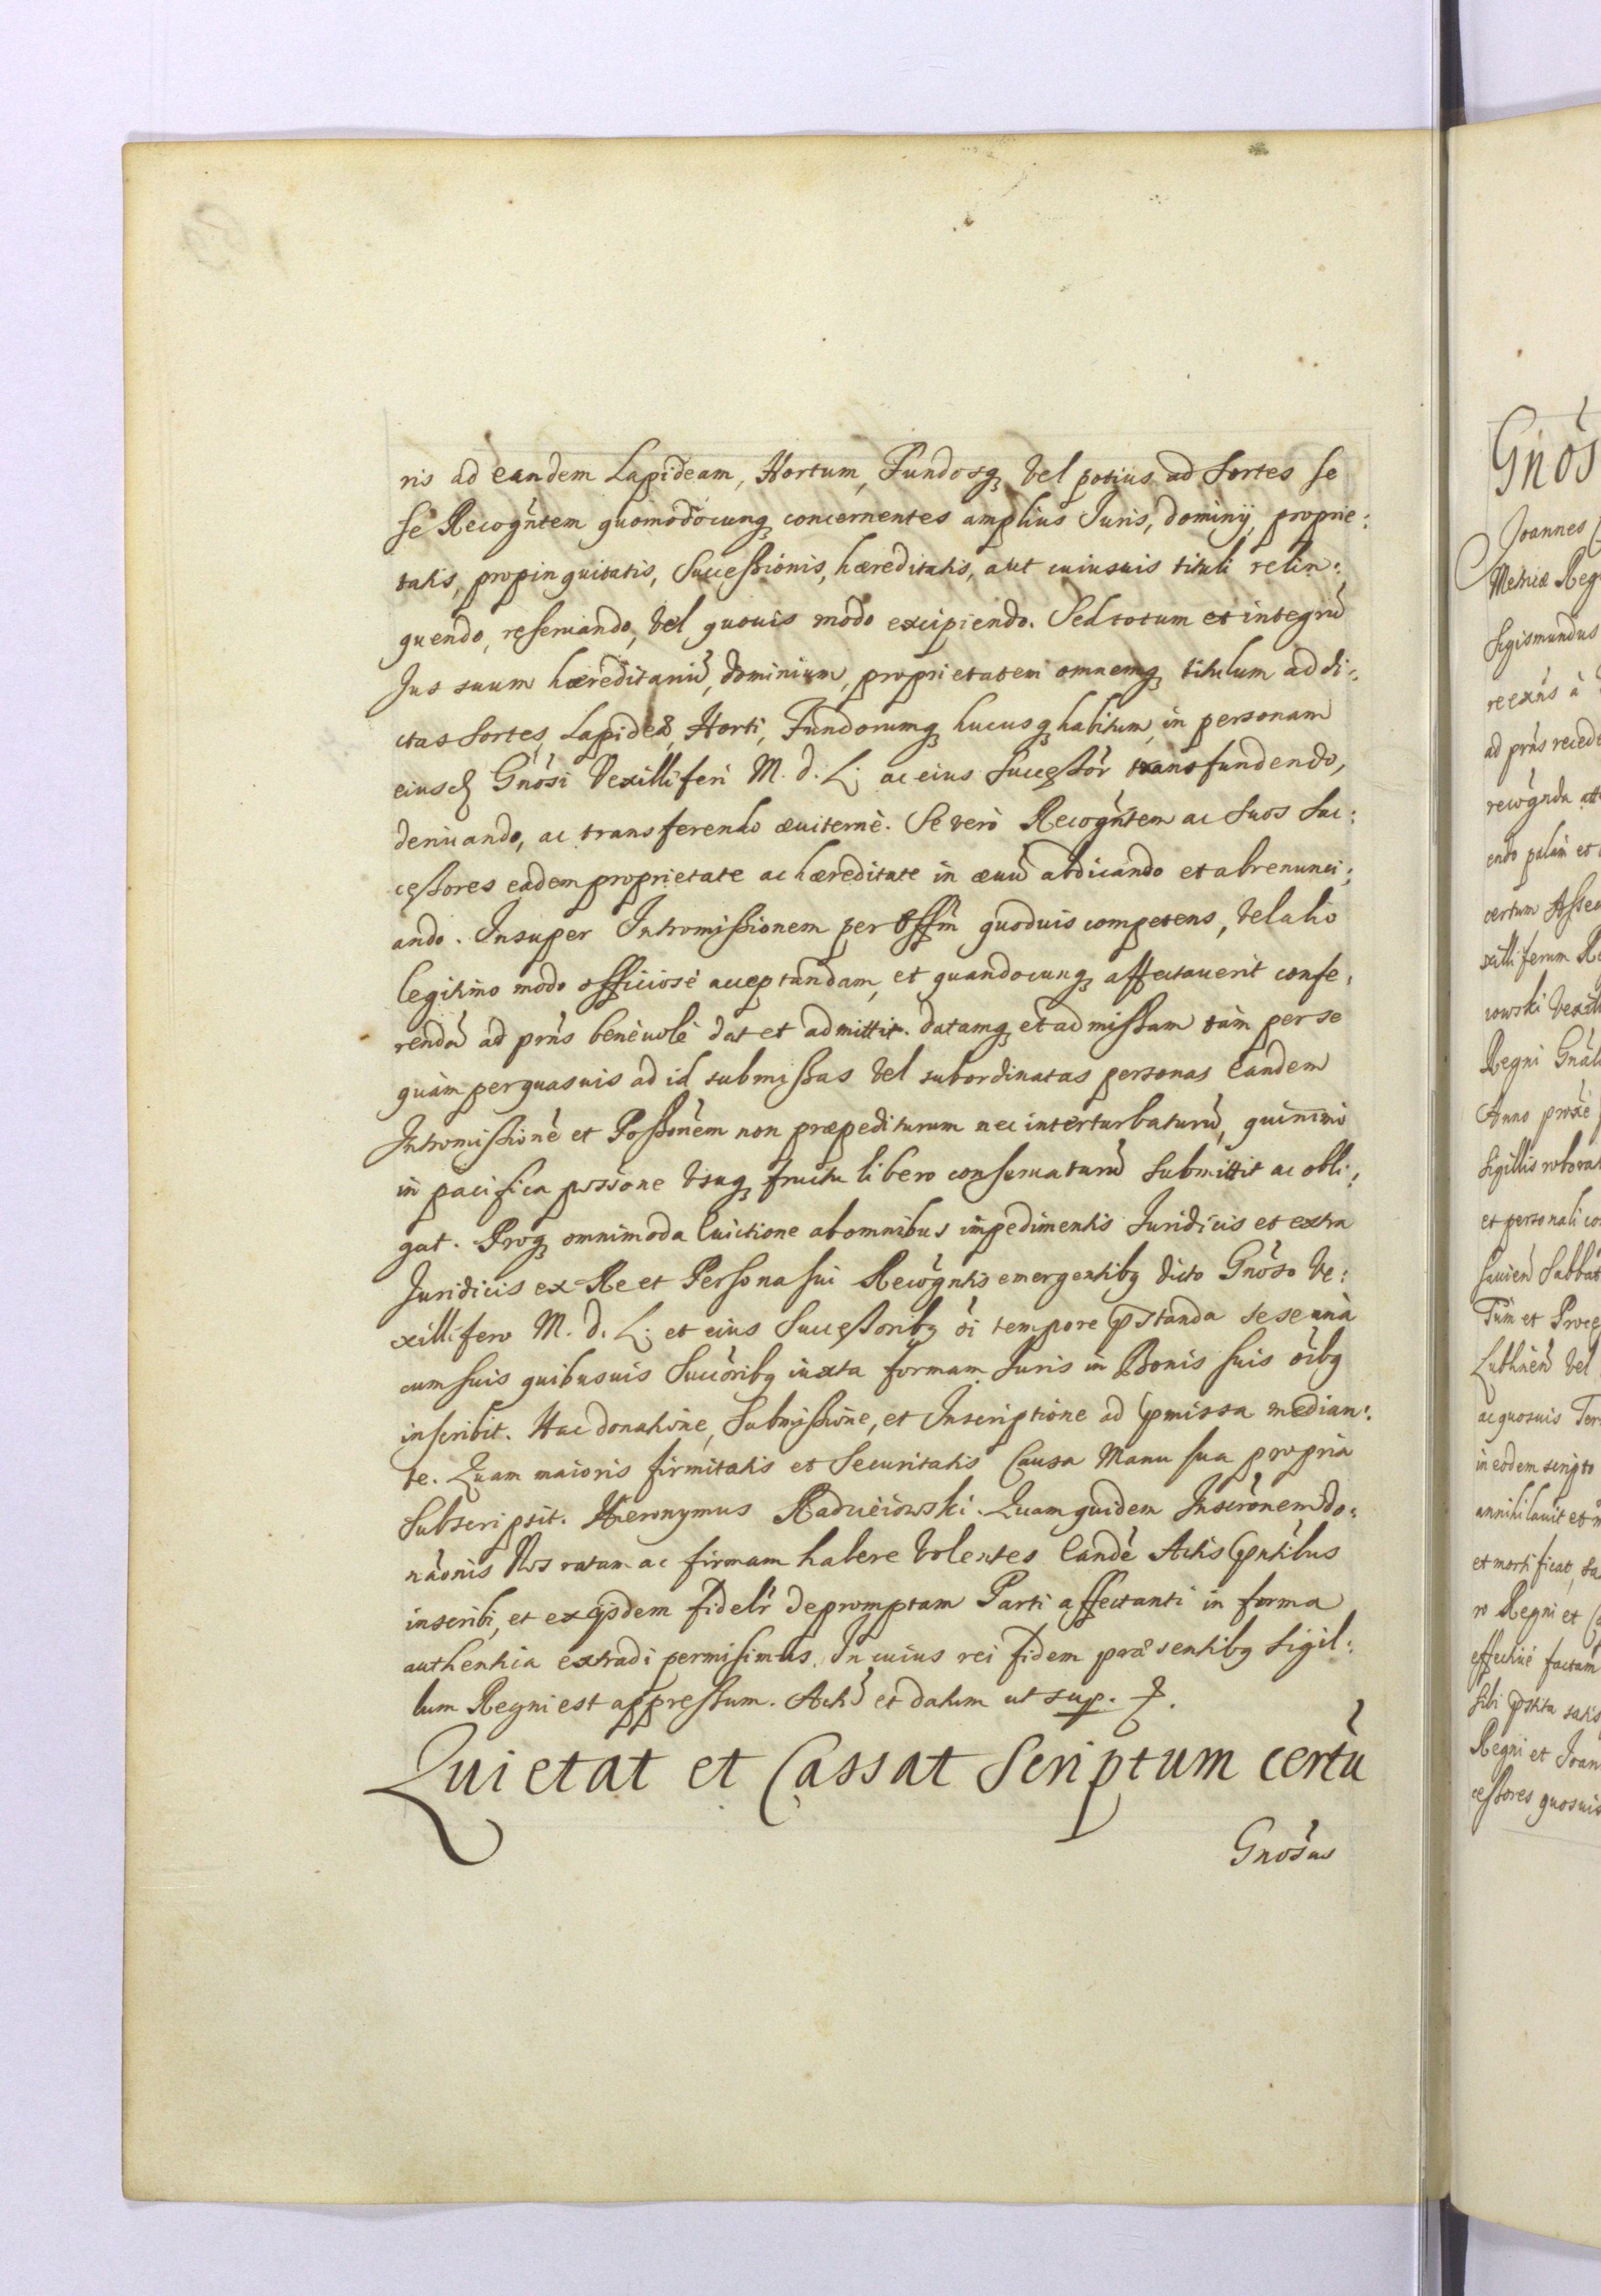 ris ad eandem Lapideam, Hortum, Fundosq₃ vel potius ad Sortes se
se Recogñtem quomodocunq₃ concernentes amplius Juris, dominij, proprie:
tatis, propinquitatis, Successionis, hæreditatis, aut cuiusuis tituli relin:
quendo, reseruando, vel quouis modo excipiendo. Sed totum et integrũ
Jus suum hæreditariũ, dominium, proprietatem omnemq₃ titulum ad di:
ctas Sortes, Lapideæ, Horti, Fundorumq₃ hucusq₃ habitum, in personam
eiusd Gnõsi Vexilliferi M. d. L. ac eius Successor transfundendo,
deriuando, ac transferendo æuiternè. Se verò Recogñtem ac Suos Suc:
cessores eadem proprietate ac hæreditate in æuũ abdicando et abrenunci:
ando. Insuper Intromissionem per Offm̃ quoduis competens, vel alio
legitimo modo officiosè acceptandam, et quandocunq₃ affectauerit confe:
rendã ad prñs beneuolè dat et admittit. datamq₃ et admissam tàm per se
quàm per quasuis ad id submissas vel subordinatas personas Eandem
Intromissionẽ et Possõnem non præpediturum nec interturbaturũ, quinimò
in pacifica possione vsuq₃ fructu libero conseruaturũ submittit ac obli:
gat. Proq₃ omnimoda Euictione ab omnibus impedimentis Juridicis et extra
Juridicis ex Re et Persona sui Recogñtis emergentibq₃ dicto Gnõso Ve:
xillifero M. d. L. et eius Successoribq₃ õi tempore pstanda sese unà
cum suis quibusuis Succõribq₃ iuxta formam Juris in Bonis suis õibq₃
inscribit. Hac donatiõne, Submissiõne, et Inscriptione ad pmissa median:
te. Quam maioris firmitatis et Securitatis Causa Manu sua propria
Subscripsit. Hieronymus Radzieiowski. Quam quidem Inscrõnem do:
nãonis Nos ratam ac firmam habere volentes Eandẽ Actis pntĩbus
inscribi, et ex ijsdem fidelr̃ depromptam Parti affectanti in forma
authentica extradi permisimus. In cuius rei fidem præsentibq₃ Sigil:
lum Regni est appressum. Actũ et datum ut sup.
Quietat et Cassat Scriptum certũ
Gnõsus
Gnõs
Joannes
Metricæ Reg
Sigismundus
reexñs à
ad prñs recede
recogñda
endo palàm et
certum Asse
xilliferum Re
iowski Vexill
Regni Gnãl
Anno proxẽ
Sigillis roborat
et personali co
Sabbat
Tum et Proce
Lublinẽ vel
ac quosuis Ter
in eodem scripto
annihilauit et
et mortificat, sa
ro Regni et
effectiuè factam
sibi pstita satis
Regni et Joan
cessores quosuis